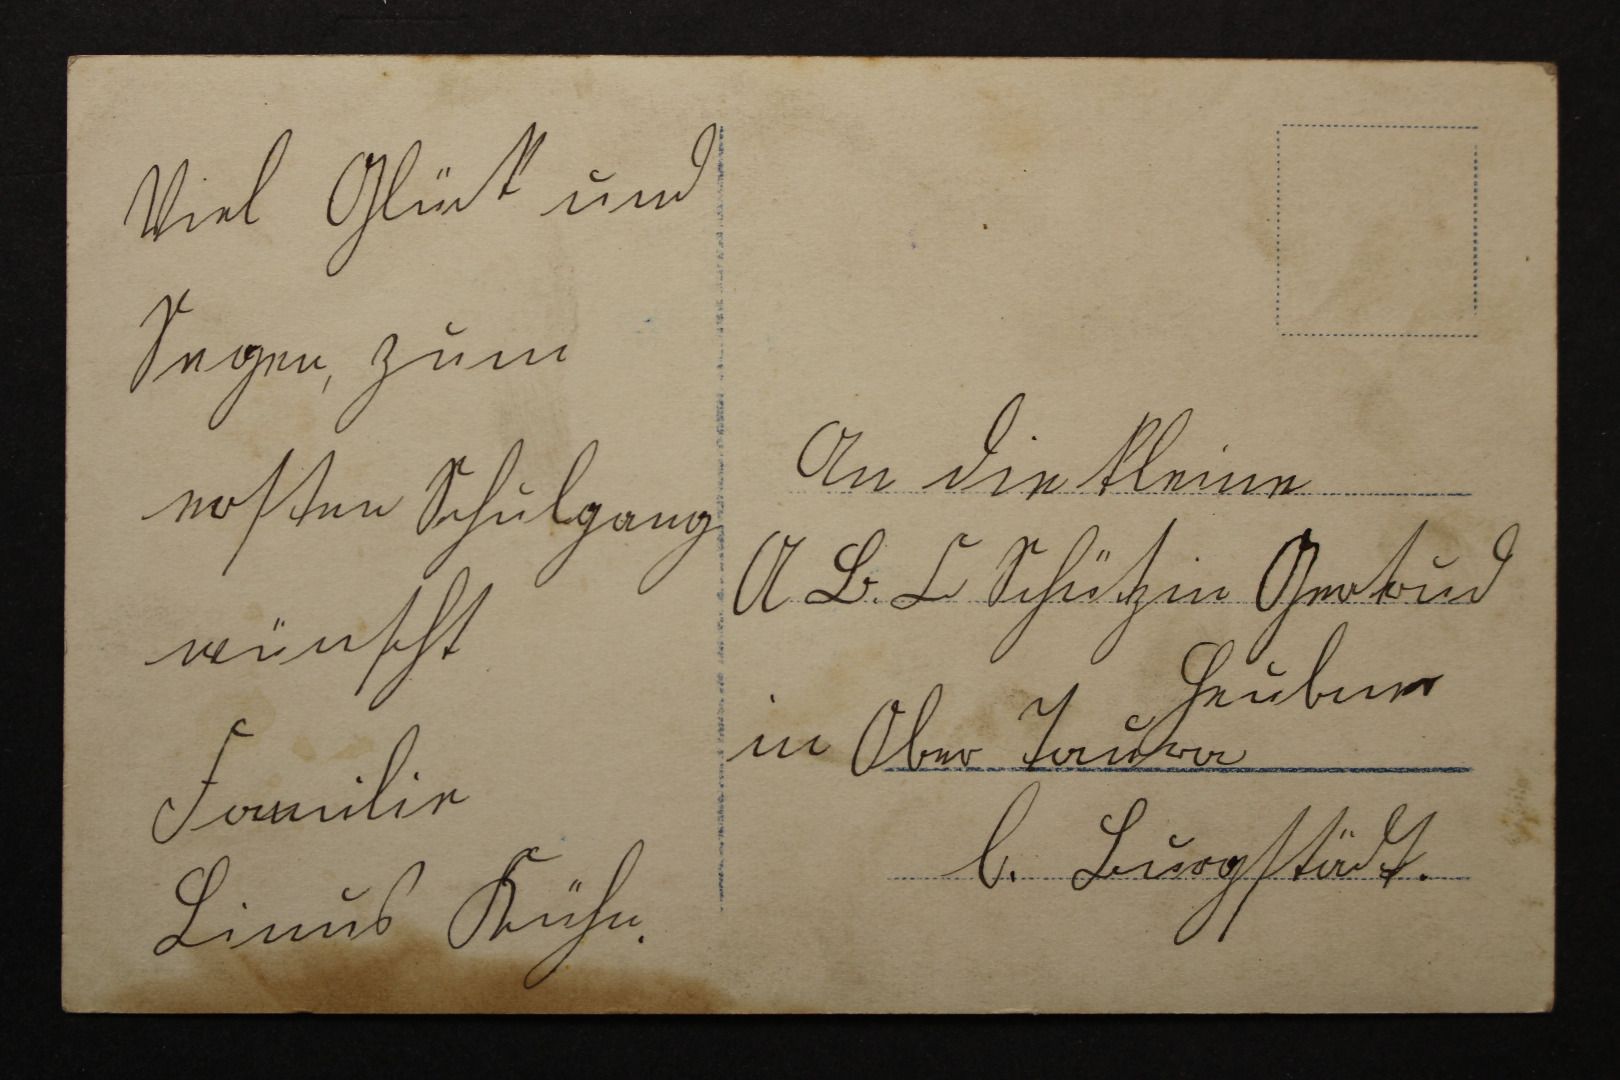 Viel Glück und
Segen, zum
ersten Schulgang
wünscht
Familie
Linus Kühn.
An die kleine
A B. C Schützin Gertrud
Heubner
in Ober Taura
b. Burgstädt.